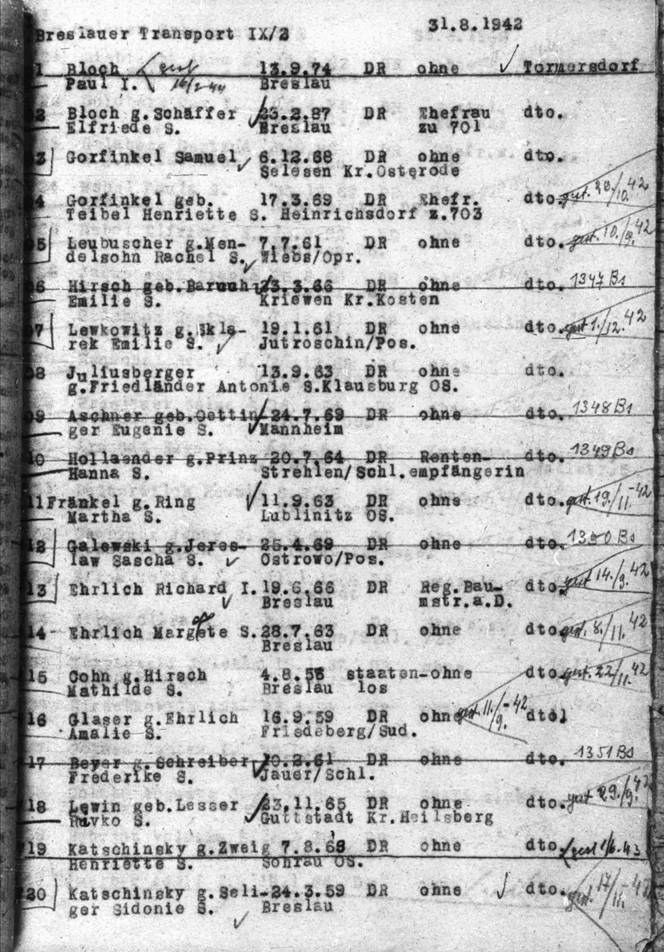 Breslauer Transport IX/2 31.8.1942
1 Bloch gest 13.9.74 DR ohne Tormersdorf
Paul I. 16/2.44 Breslau
2 Bloch g.Schäffer 23.2.87 DR Ehefrau dto.
Elfriede S. Breslau zu 701
03 Gorfinkel Samuel 6.12.68 DR ohne dto.
Selesen Kr.Osterode
04 Gorfinkel geb. 17.3.69 DR Ehefr. dto. gest. 20./10. 42
Teibel Henriette S. Heinrichsdorf z.703
05 Leubuscher g.Men- 7.7.61 DR ohne dto. gest. 10./9. 42
delsohn Rachel S. Wiebs/Opr.
06 Hirsch geb.Baruch 23.3.66 DR ohne dto. 1347 Bs
Emilie S. Kriewen Kr.Kosten
07 Lewkowitz g.Skla- 19.1.61 DR ohne dto. gest 1./12. 42
rek Emilie S. Jutroschin/Pos.
08 Juliusberger 13.9.63 DR ohne dto.
g.Friedländer Antonie S.Klausburg OS.
09 Aschner geb.Oettin- 24.7.69 DR ohne dto. 1348 Bs
ger Eugenie S. Mannheim
10 Hollaender g.Prinz 20.7.64 DR Renten- dto. 1349 Bs
Hanna S. Strehlen/Schl.empfängerin
11 Fränkel g.Ring 11.9.63 DR ohne dto. gest. 19./11. 42
Martha S. Lublinitz OS.
12 Galewski g.Jeres- 25.4.69 DR ohne dto. 1350 Bs
law Sascha S. Ostrowo/Pos.
13 Ehrlich Richard I. 19.6.66 DR Reg.Bau- dto. gest 14./9. 42
Breslau mstr.a.D.
14 Ehrlich Margete S. 28.7.63 DR ohne dto. gest. 8./11. 42
Breslau
15 Cohn g.Hirsch 4.8.56 staaten-ohne dto. gest. 22/11. 42
Mathilde S. Breslau los
16 Glaser g.Ehrlich 16.9.59 DR ohne gest. 11./9. 42 dto.
Amalie S. Friedeberg/Sud.
17 Beyer g.Schreiber 10.2.61 DR ohne dto. 1351 Bs
Frederike S. Jauer/Schl.
18 Lewin geb.Lesser 23.11.65 DR ohne dto. gest 29./9. 42
Rivko S. Guttstadt Kr.Heilsberg
719 Katschinsky g.Zweig 7.8.68 DR ohne dto. gest 1/6.43
Henriette S. Sohrau OS.
720 Katschinsky g.Seli- 24.3.59 DR ohne dto. gest. 17/11. 42
ger Sidonie S. Breslau